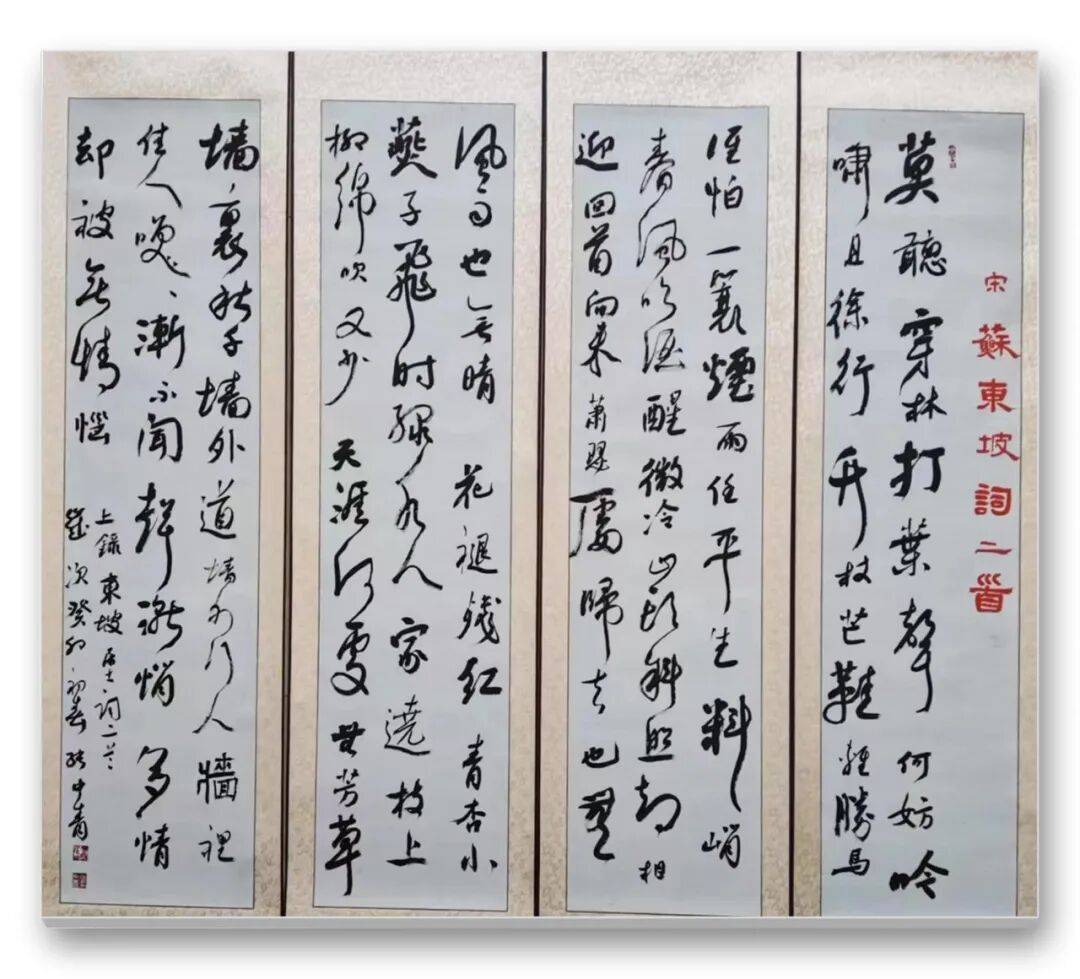 宋 蘇東坡詞二首
莫聽穿林打葉聲何妨吟
嘯且徐行竹杖芒鞋輕勝馬
誰怕一蓑煙雨任平生料峭
春風吹酒醒微冷山頭斜照却相
迎回首向來蕭瑟處歸去也無
風雨也無晴 花褪残红青杏小
燕子飛时绿水人家遶枝上
柳绵吹又少天涯何處無芳草
墙裏秋千墙外道墙外行人牆裡
佳人笑笑漸不闻聲漸悄多情
却被無情惱
上錄東坡居士詞二首
歲次癸卯初春 中青